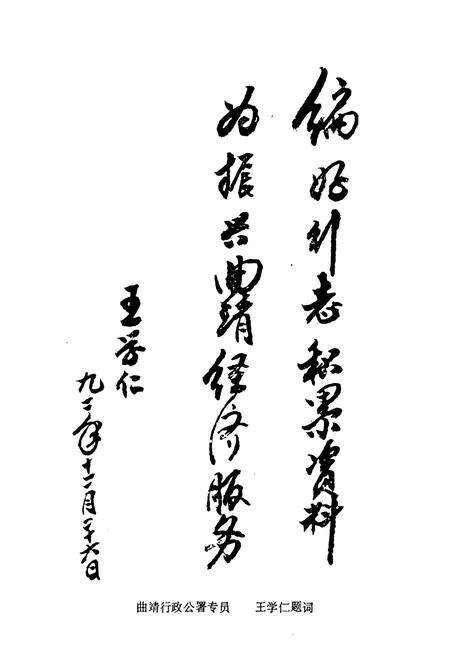 编好计志积累资料
为振兴曲靖经济服务
王学仁
九二年十二月二十六日
曲靖行政公署专员 王学仁题词